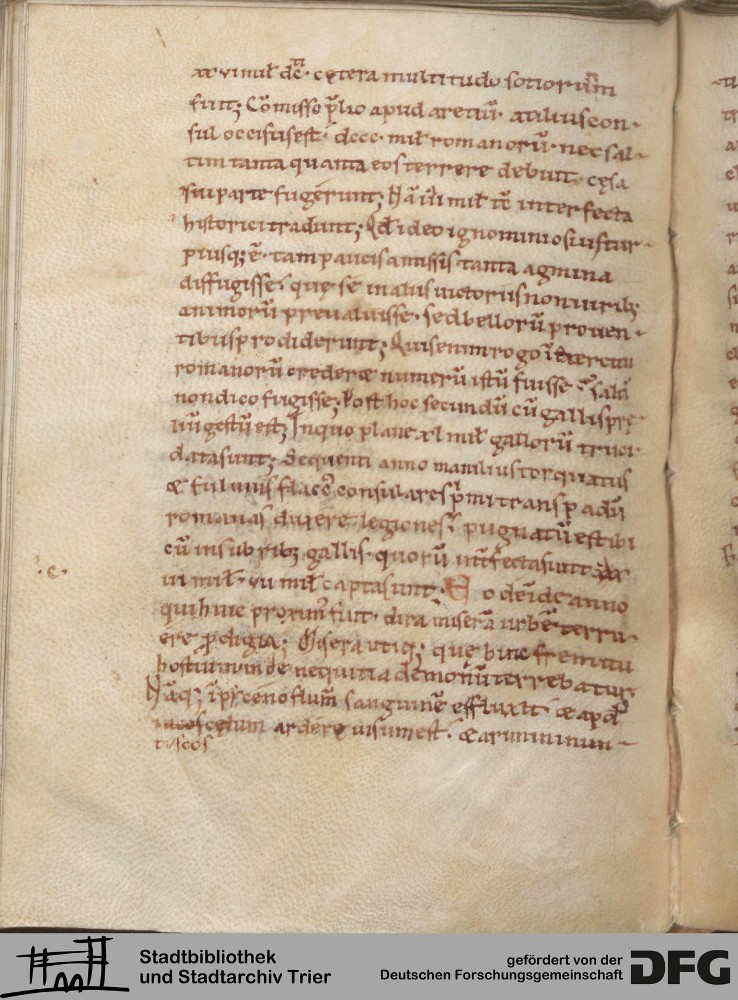 xx vi mil dc̄· cętera multitudo sotiorum
fuit; Cōmisso p̄lio apud aretiū· atilius con-
sul occisus est· dccc· mil romanorū· nec sal-
tim tanta quanta eos terrere debuit· cęsa
sui parte fugerunt; Nā iii mil tc̄ interfecta
historici tradunt; Qd ideo ignominiosius tur-
piusq; ē· tam paucis amissis tanta agmina
diffugisse· quę se in aliis victoriis non virib;
animorū prevaluisse· sed bellorū proven-
tibus prodiderunt; Quis enim rogo ī exercitu
romanorū crederæ numerū istū fuisse·
non dico fugisse; Post hoc secundū cū gallis pre-
liū gestū est; In quo plane xl mil gallorū truci-
data sunt; Sequenti anno manilius torquatus
æ fulvius flacc' consulares p̄mi trans padū
romanas duxere legiones· pugnatū est ibi
cū insubrib; gallis· quorū inīfecta sunt xx
iii mil· vu mil capta sunt; Eo deīde anno
·c·
qui huic proxim' fuit· dira miserā urbē terru-
ere p̄digia; Misera utiq; quę hinc fremitu
hostium inde nequitia demonū terrebatur·
Nāq; ī pyceno flum̄ sanguine effluxit· æ apd̄
tuscos cęlum ardere visum est· æ arimini mun-
tuscos
Stadtbibliothek
und Stadtarchiv Trier
gefördert von der
Deutschen Forschungsgemeinschaft
DFG